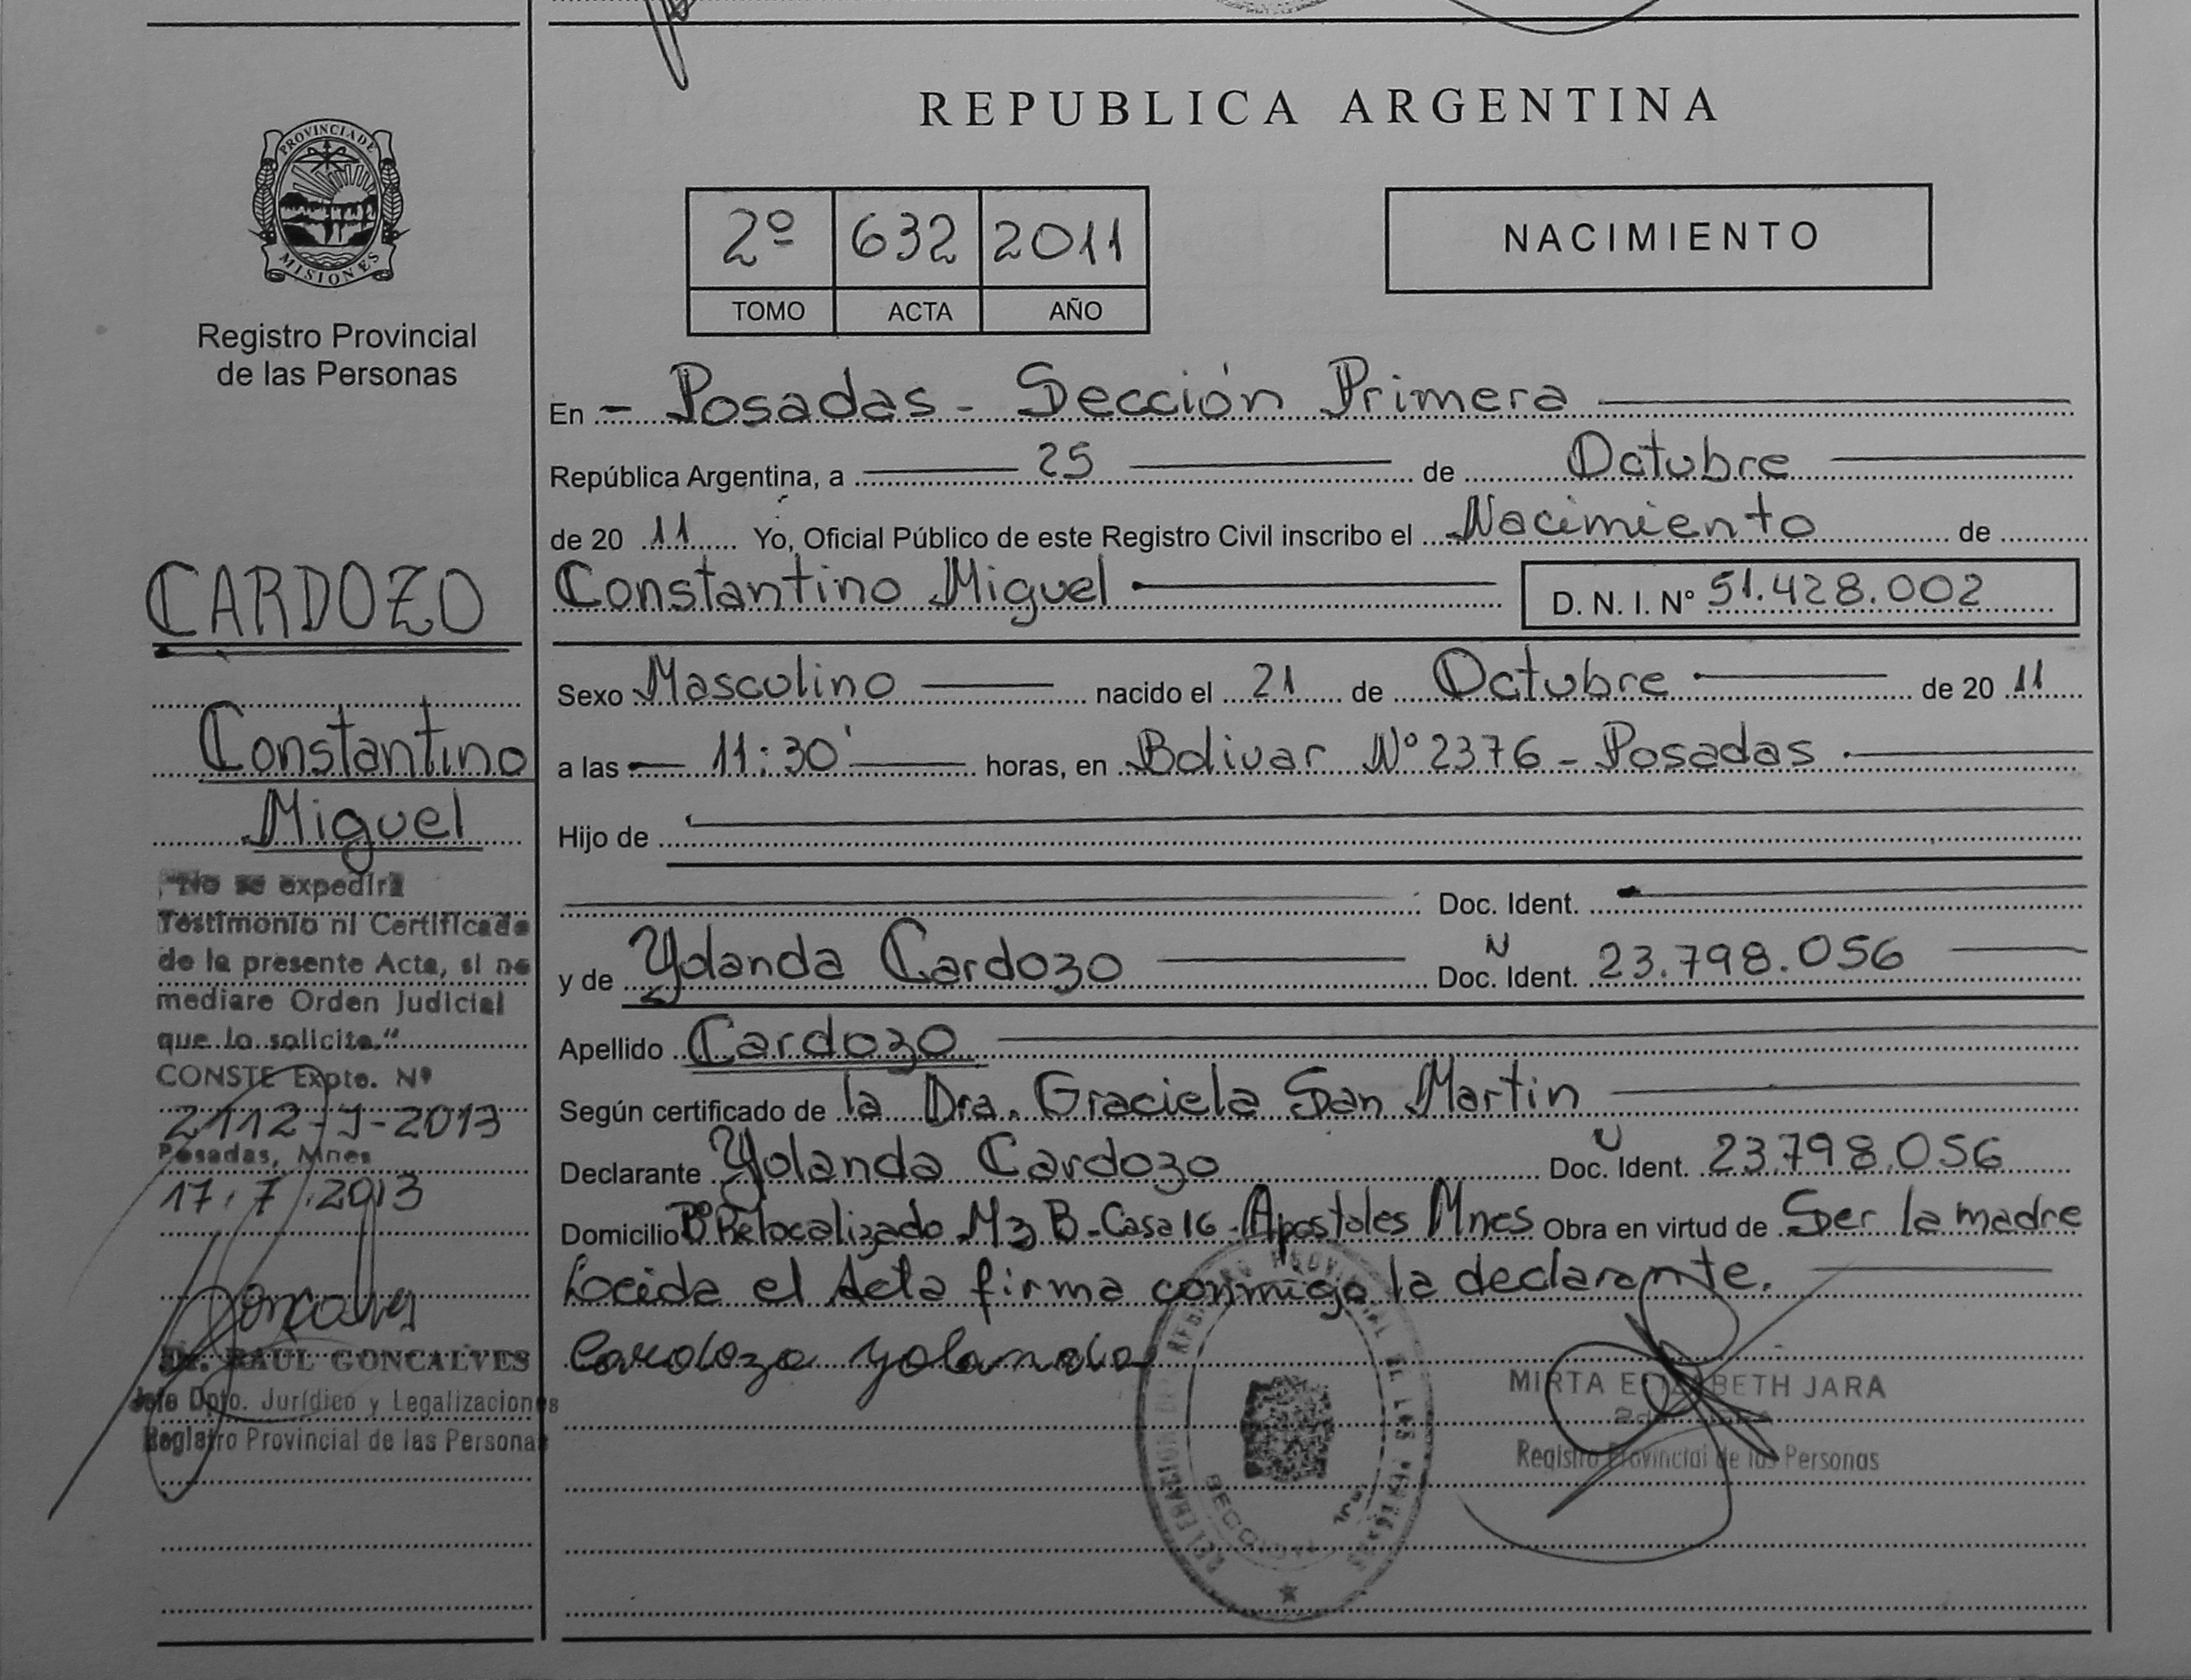 PROVINCIA DE
MISIONES
Registro Provincial
de las Personas
CARDOZO
Constantino
Miguel
"No se expedirá
Testimonio ni Certificado
de la presente Acta, si no
mediare Orden Judicial
que lo solicite."
CONSTE Expte. Nº
2112-J-2013
Posadas, Mnes
17.7.2013
Goncalves
Dr. RAUL GONCALVES
Jefe Dpto. Jurídico y Legalizaciones
Registro Provincial de las Personas
REPUBLICA ARGENTINA
2º 632 2011
TOMO ACTA AÑO
NACIMIENTO
En - Posadas - Sección Primera
República Argentina, a 25 de Octubre
de 20 11 Yo, Oficial Público de este Registro Civil inscribo el Nacimiento de
Constantino Miguel D. N. I. Nº 51.428.002
Sexo Masculino nacido el 21 de Octubre de 20 11
a las 11:30' horas, en Bolivar Nº 2376 - Posadas
Hijo de
Doc. Ident.
y de Yolanda Cardozo Doc. N Ident. 23.798.056
Apellido Cardozo
Según certificado de la Dra. Graciela San Martin
Declarante Yolanda Cardozo Doc. N Ident. 23.798.056
Domicilio Bº Relocalizado Mz B - Casa 16 - Apostoles Mnes Obra en virtud de Ser la madre
Loeida el Acta firma conmigo la declarante.
Cardozo Yolanda
MIRTA ELIZABETH JARA
Registro Provincial de las Personas